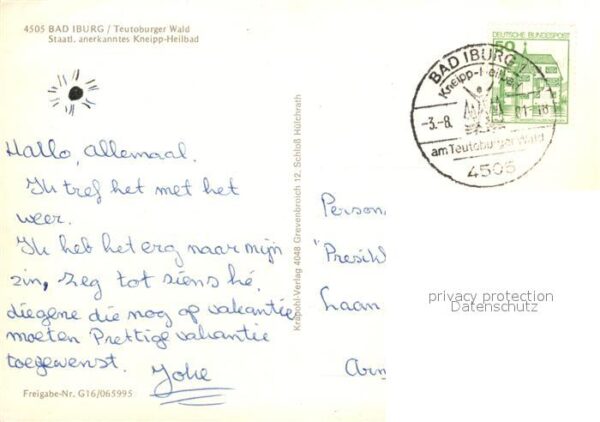 4505 BAD IBURG / Teutoburger Wald
Staatl. anerkanntes Kneipp-Heilbad
Hallo, allemaal.
Ik tref het met het
weer.
Ik heb het erg naar mijn
zin, zeg tot siens hé.
diegene die nog op vakantie
moeten Prettige vakantie
toegewenst.
Joke
Freigabe-Nr. G16/065995
Krapohl-Verlag 4048 Grevenbroich 12, Schloß Hülchrath
DEUTSCHE BUNDESPOST
50
BAD IBURG 1
Kneipp-Heilbad
-3.-8. 81-18
am Teutoburger Wald
4505
Person
"Presikl
Laan
privacy protection
Datenschutz
Arn